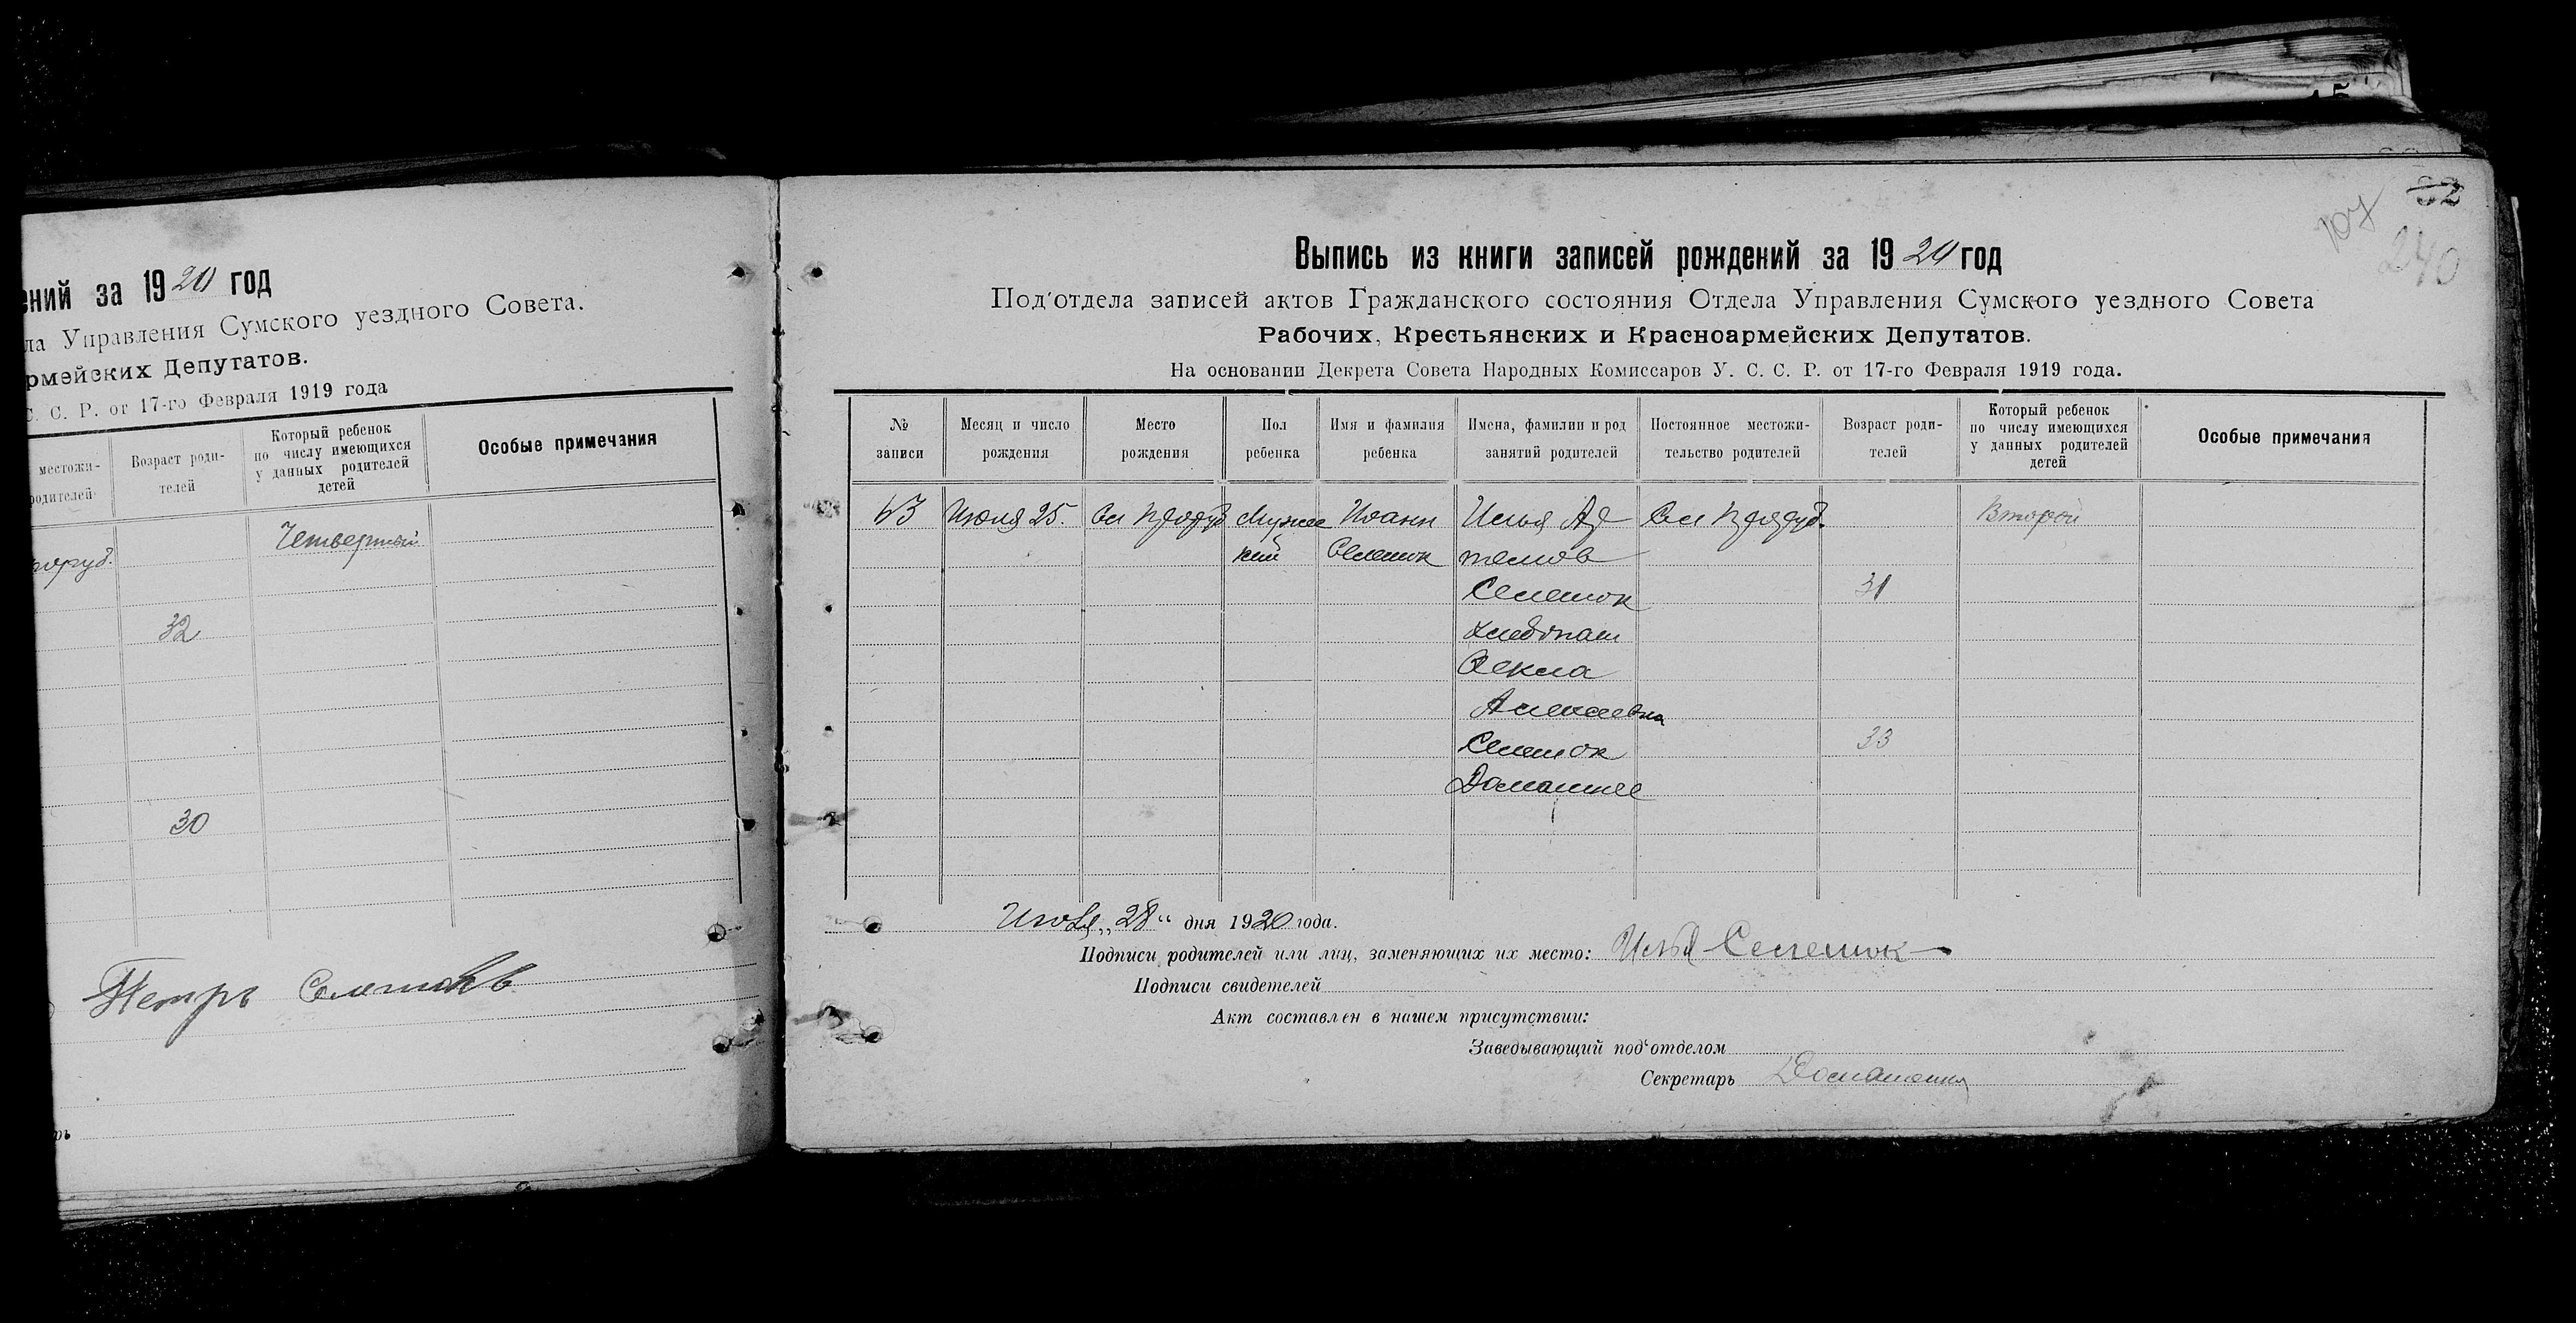 ений за 1920 год
ла Управления Сумского уездного Совета.
рмейских Депутатов.
С. С. Р. от 17-го Февраля 1919 года
местожи-
родителей
Возраст роди-
телей
Который ребенок
по числу имеющихся
у данных родителей
детей
Особые примечания
Четвертый
32
30
Петръ
32
107
240
Выпись из книги записей рождений за 1920 год
Под'отдела записей актов Гражданского состояния Отдела Управления Сумского уездного Совета
Рабочих, Крестьянских и Красноармейских Депутатов.
На основании Декрета Совета Народных Комиссаров У. С. С. Р. от 17-го Февраля 1919 года.
№
записи
Месяц и число
рождения
Место
рождения
Пол
ребенка
Имя и фамилия
ребенка
Имена, фамилии и род
занятий родителей
Постоянное местожи-
тельство родителей
Возраст роди-
телей
Который ребенок
по числу имеющихся
у данных родителей
детей
Особые примечания
Июля 25.
Мужс
кий
Иоанн
Селешок
Илья Ар
темов
Селешок
хлебопаш
Фекла
Алексеевна
Селешок
Домашнее
31
33
Второй
Июля „28“ дня 1920 года.
Подписи родителей или лиц, заменяющих их место: Илья Селешок
Подписи свидетелей
Акт составлен в нашем присутствии:
Заведывающий под'отделом
Секретарь